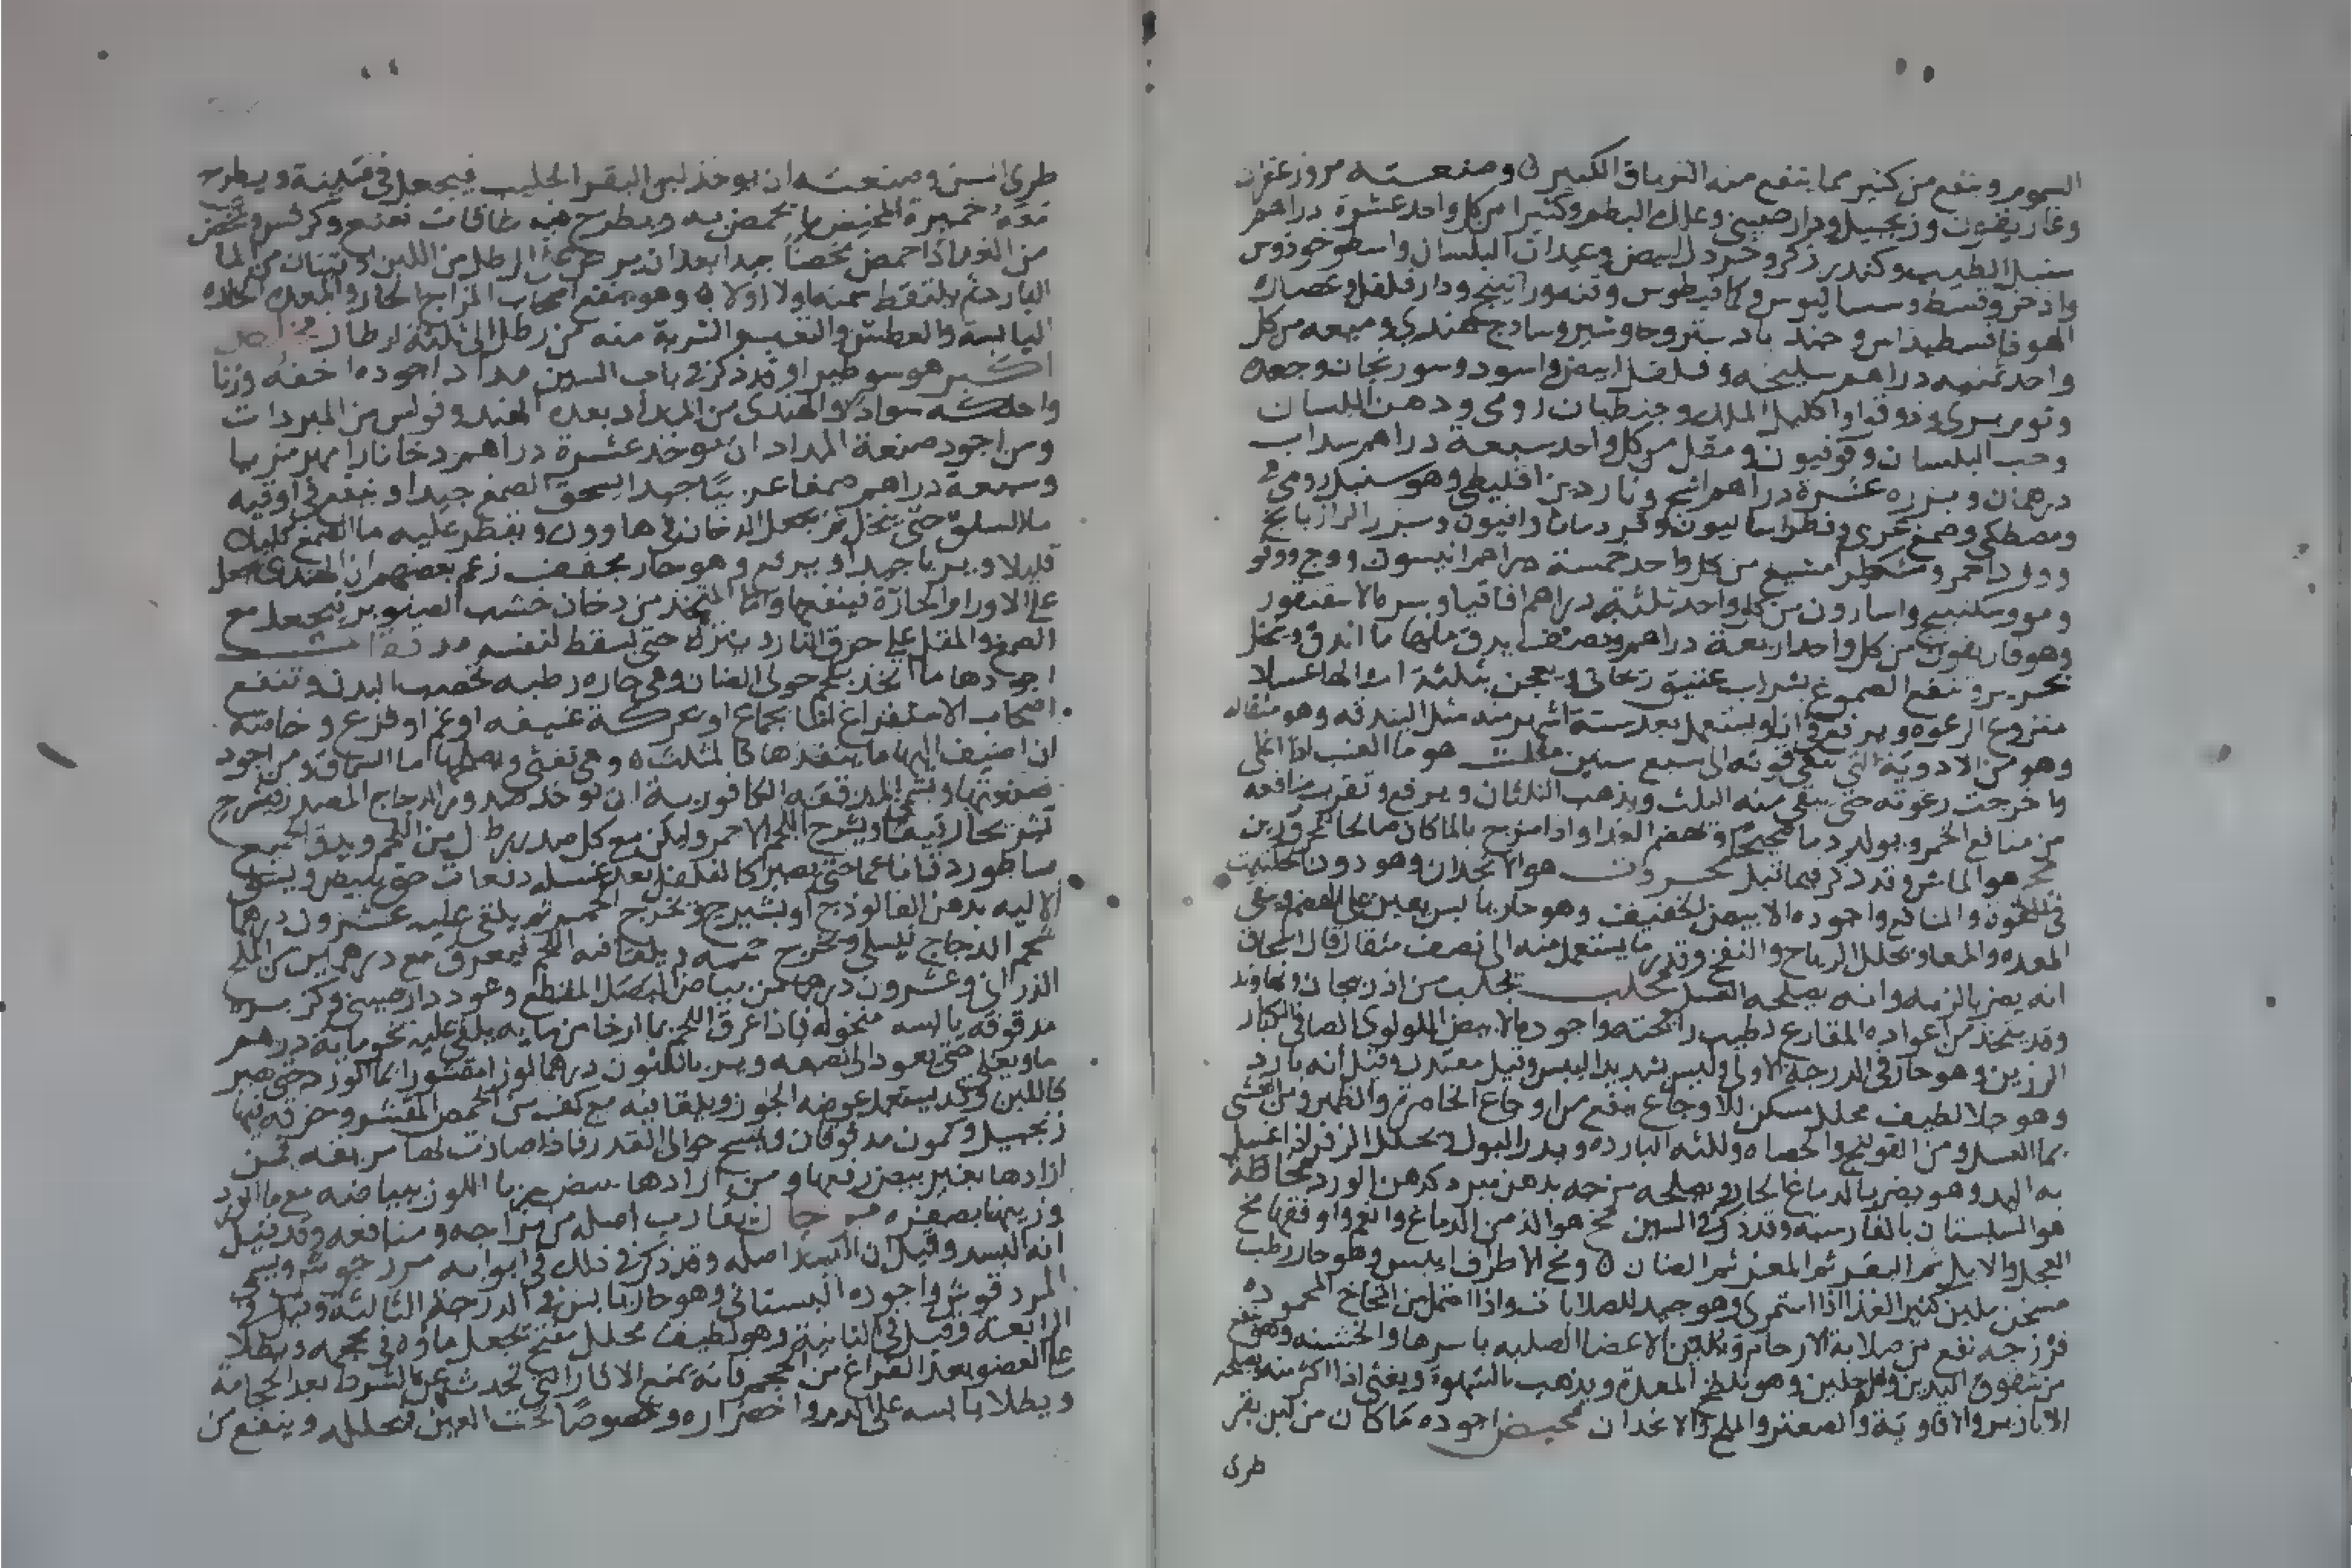 السموم وينفع من كثير مما ينفع منه الترياق الكبير ٥ وصنعته مر وزعفران
وغاريقون وزنجبيل ودارصيني وعلك البطم وكثيرا من كل واحد عشرة دراهم
سنبل الطيب وكندر ذكر وخردل ابيض وعيدان البلسان واسطوخودوس
واذخر وقسط وسساليوس وكمافيطوس وقنه وراتينج ودارفلفل وعصاره
الهوفاقسطيداس وجند بادستر وجاوشير وسادج هندي وميعه من كل
واحد ثمنيه دراهم سليخه وفلفل ابيض واسود وسورنجان وجعده
وثوم بري ودوقوا واكليل الملك وجنطيان رومي ودهن البلسان
وحب البلسان وقوفيون ومقل من كل واحد سبعة دراهم سداب
درهمان وبزره عشرة دراهم اشج وناردين اقليطي وهو سنبل رومي
ومصطكي وصمغ عربي وفطراساليون وقردمانا وافيون وبزر الرازيانج
وورد احمر ومشكطرامشيع من كل واحد خمسة دراهم انيسون ووج وفو
ومو وسكبينج واسارون من كل واحد ثلثة دراهم اقاقيا وسرة الاسقنقور
وهوفاريقون من كل واحد اربعة دراهم ونصف يدق منها ما اندق وينخل
بحرير وتنقع الصموغ بشراب عتيق ريحاني ويعجن بثلثة امثالها عسلا
منزوع الرغوه ويرفع في اناء ويستعمل بعد ستة اشهر منه مثل البندقه وهو مثقال
وهو من الادوية التي تبقى قوته الى سبع سنين مثلث هو ما العنب اذا اغلي
واخرجت رغوته حتى يبقى منه الثلث ويذهب الثلثان ويرفع وتقرب منافعه
من منافع الخمر ويولد دما صحيحا ويهضم الغذا واذا مزج بالما كان صالحا للمحرورين
مج هو الماش وقد ذكر فيما قبل محروت هو الانجدان وهو دون الحلتيت
في القوه والمنافع واجوده الابيض الخفيف وهو حار يابس يعين على الهضم وينقي
المعده والمعا ويحلل الرياح والنفخ وقدر ما يستعمل منه الى نصف مثقال قال اسحاق
انه يضر بالريه وانه يصلحه العسل محلب يجلب من اذربيجان ونهاوند
وقد يتخذ من عواده المقارع لطيب رائحته واجوده الابيض اللولوي الصافي الكبار
الرزين وهو حار في الدرجة الاولى وليس شديد اليبس وقيل معتدل وقيل انه بارد
وهو جلا لطيف محلل مسكن للاوجاع ينفع من اوجاع الخاصرة والظهر ومن الغشي
بما العسل ومن القولنج والحصاه واللثه البارده ويدر البول ويحلل الزفر اذا اغسل
به اليد وهو يضر بالدماغ الحار ويصلحه مزجه بدهن مبرد كدهن الورد مخاطة
هو السبستان بالفارسية وقد ذكر في السين مخ هو الذ من الدماغ وانعم واوفقها مخ
العجل والايل ثم البقر ثم المعز ثم الضان ٥ ومخ الاطراف ايبس وهو حار رطب
مسخن يلين كثير الغذا اذا استمري وهو جيد للصلابات واذا احتمل من المخاخ المحموده
فرزجه نفع من صلابة الارحام وتلين الاعضا الصلبه باسرها والخشنه وهو ينفع
من شقوق اليدين والرجلين وهو يلطخ المعدة ويذهب بالشهوة ويغثي اذا اكثر منه يصلحه
الابازير والافاوية والصعتر والملح والانجدان مخيض اجوده ما كان من لبن بقر
طري
طري السن وصنعته ان يوخذ لبن البقر الحليب فيجعل في قنينة ويطرح
فوقه خميرة المخيض ما يحمض به ويطرح فيه طاقات نعنع وكرفس ويمخض
من الغد فاذا حمض مخضا جيدا بعد ان يطرح على الرطل من اللبن اوقيتان من الما
البارد ثم يلتقط سمنه اولا اولا ٥ وهو ينفع اصحاب المزاج الحار والمعدة الحارة
اليابسة والعطش والتعب والشربة منه من رطل الى ثلثة ارطال مخلص
اكبر هو سوطيرا وقد ذكر في باب السين مداد اجوده اخفه وزنا
واحلكه سوادا والهندي من المداد بعده الهند وقولس من المبردات
ومن اجود صنعة المداد ان يوخذ عشرة دراهم دخانا راهم مربيا
وسبعة دراهم صمغا عربيا جيدا يسحق الصمغ جيدا وينقع في اوقيه
ما السلق حتى ينحل ثم يجعل الدخان في هاوون ويقطر عليه ما الصمغ قليلا
قليلا ويربا جيدا ويرفع وهو حار مجفف زعم بعضهم ان الهندي يجعل
على الاورام الحارة فينفعها واما المتخذ من دخان خشب الصنوبر فيجعل مع
الصمغ والمقل على حرق النار ويترك حتى يسقط لنفسه مدققات
اجودها ما اتخذ بلحم حولي الضان وهي حاره رطبه تخصب البدن وتنفع
اصحاب الاستفراغ لها بجماع او بحركة عنيفه او غم او فزع وخاصه
ان اضيف اليها ما ينفذها كالمثلث ٥ وهي تغثي ويصلحها ما السماق ومن اجود
صنعتها وتسمى المدققه الكافوريه ان توخذ صدور الدجاج المصدر فتشرح
تشريحا رقيقا ويشرح اللحم الاحمر وليكن مع كل صدر رطل من اللحم ويدق الجميع
ساطور دقا ناعما حتى يصير كالفلفل بعد غسله دفعات حتى يبيض ويسلق
الاليه بدهن الفالوذج او بشيرج ويخرج الحميم ثم يلقى عليه عشرون درهما
شحم الدجاج ليسلى ويخرج حممه ويلقا فيه اللحم ليعرق مع درهمين من الملح
الذراني وعشرون درهما من بياض البصل المقطع وعود دارصيني وكزبره
مدقوقه يابسه منخوله فاذا عرق اللحم بما ارخا من مايه يلقى عليه نحو ماية درهم
ما ويغلى حتى يعود الى نصفه ويربا ثلثون درهما لوزا مقشورا بما الورد حتى يصير
كاللبن وقد يستعمل عوضه الجوز ويلقا فيه مع كف من الحمص المقشر وحزقه فيها
زنجبيل وكمون مدقوقان ويمسح حوالي القدر فاذا صارت لها مريقه فمن
ارادها بغير بيض رفعها ومن ارادها ببيض ضربا اللون ببياضه مع ما الورد
وزينها بصفره مرجان يقارب اصله من مزاجه ومنافعه وقد قيل
انه البسد وقيل ان البسد اصله وقد ذكر في ذلك في ابوابه مردجوش ويسمى
المردقوش واجوده البستاني وهو حار يابس في الدرجة الثالثة وقيل في
الرابعة وقيل في الثانية وهو لطيف محلل مفتح يجعل ماوه في محجمه ويطلا
على العضو بعد الفراغ من المحجم فانه يمنع الاثار التي تحدث عن الشرط بعد الحجامة
ويطلا يابسه على الدم واخضراره وخصوصا تحت العين فيحلله وينفع من